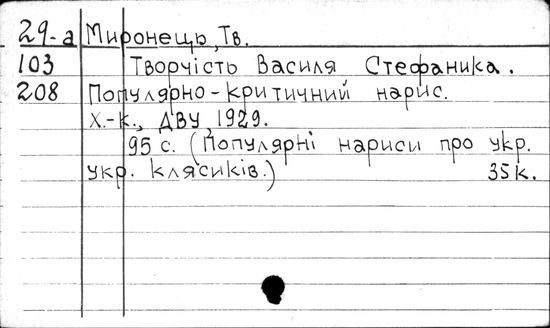 29-а Миронець, Тв.
103 Творчість Василя Стефаника.
208 Популярно-критичний нарис.
Х.-К., ДВУ, 1929.
95 с. (Популярні нариси про укр.
укр. клясиків.) 35 к.